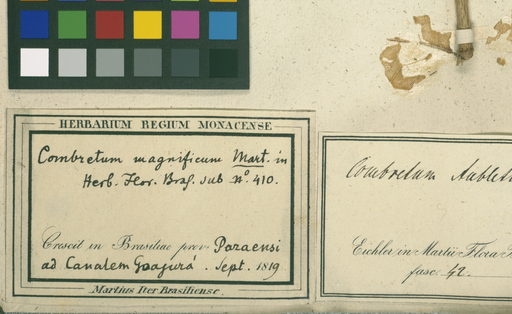 HERBARIUM REGIUM MONACENSE
Combretum magnificum Mart. in
Herb. Flor. Bras. sub nº. 410.
Crescit in Brasiliae prov. Paraensi
ad Canalem Goajurá. Sept. 1819
Martius Iter Brasiliense.
Combretum
Eichler in Martii Flora
fasc. 42.